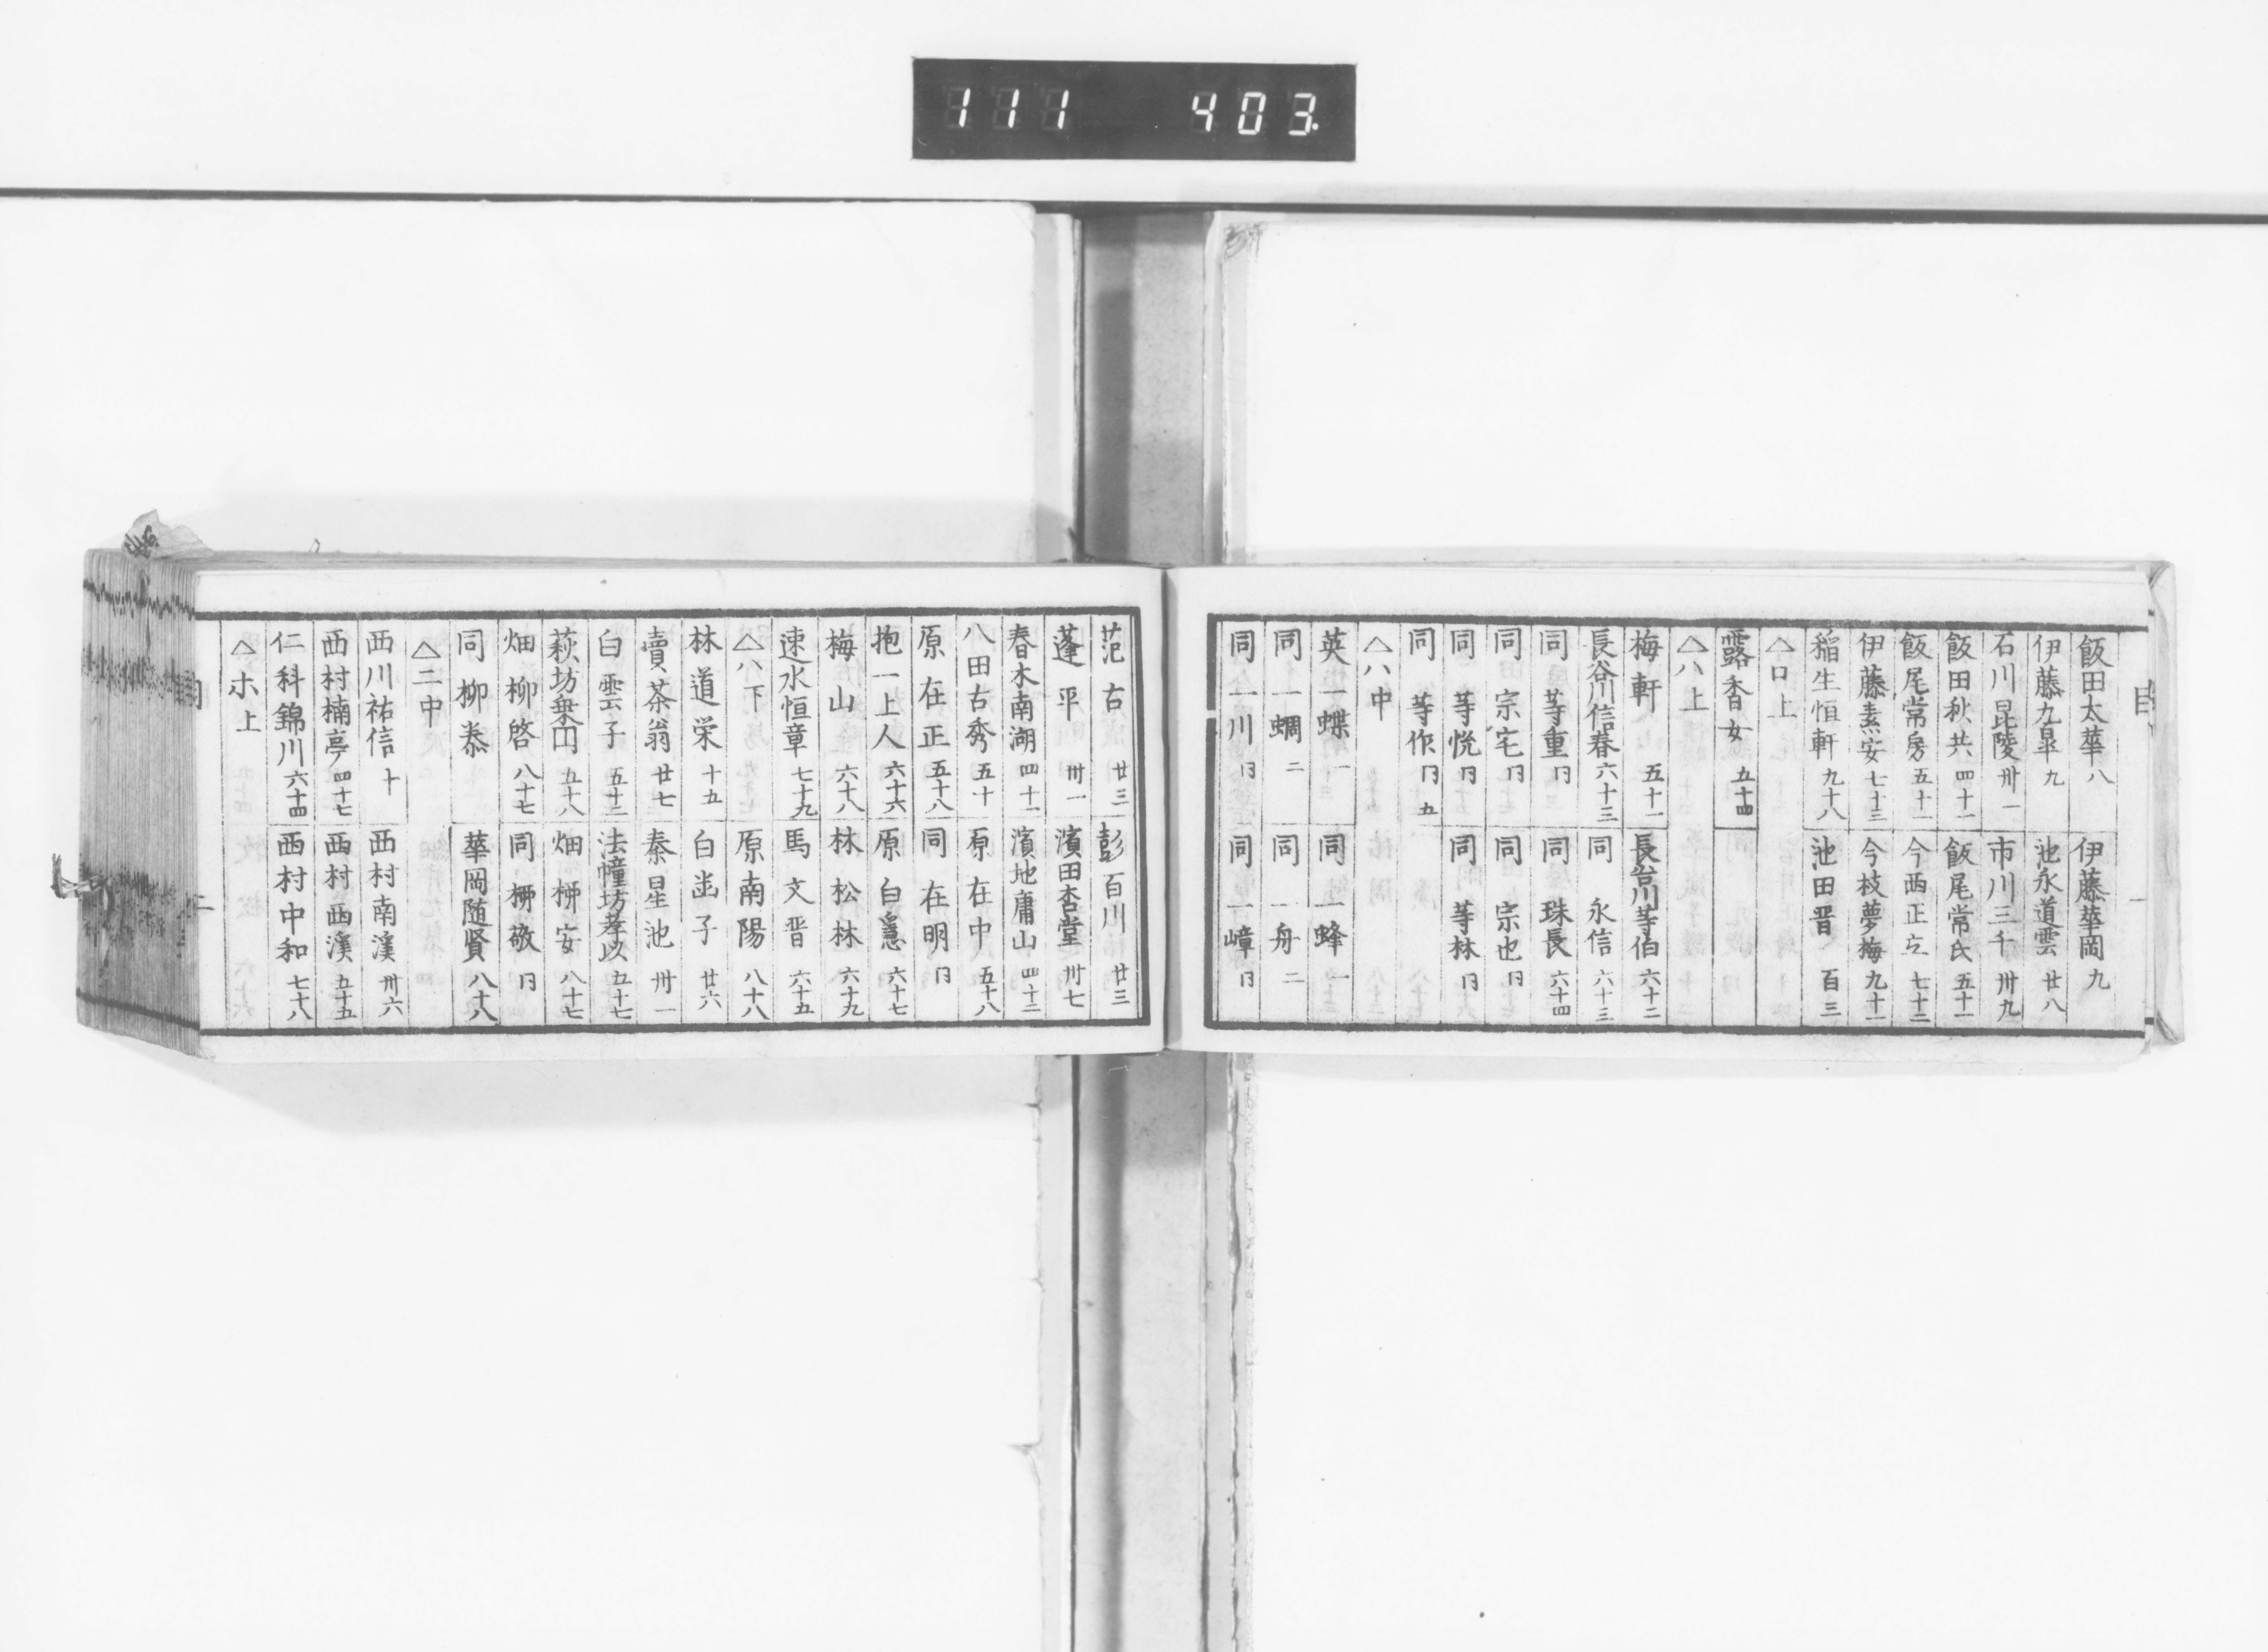 111 403.
目
飯田太華 八 伊藤華岡 九
伊藤九皐 九 池永道雲 廿八
石川昆陵 卅一 市川三千 卅九
飯田秋共 四十一 飯尾常氏 五十一
飯尾常房 五十一 今西正立 七十二
伊藤素安 七十三 今枝夢梅 九十一
稲生恒軒 九十八 池田晋 百三
△ロ上
露香女 五十四
△ハ上
梅軒 五十一 長谷川等伯 六十二
長谷川信春 六十三 同 永信 六十三
同 等重 同 同 珠長 六十四
同 宗宅 同 同 宗也 同
同 等悦 同 同 等林 同
同 等作 同 五
△ハ中
英一蝶 一 同一蜂 一
同一蜩 二 同一舟 二
同一川 同 同一嶂 同
范古 廿三 彭百川 廿三
蓬平 卅一 濱田杏堂 卅七
春木南湖 四十一 濱地庸山 四十二
八田古秀 五十 原在中 五十八
原在正 五十八 同在明 同
抱一上人 六十六 原白隠 六十七
梅山 六十八 林松林 六十九
速水恒章 七十九 馬文晋 六十五
△ハ下 原南陽 八十八
林道栄 十五 白幽子 廿六
賣茶翁 廿七 秦星池 卅一
白雲子 五十三 法幢坊孝以 五十七
萩坊乗円 五十八 畑柳安 八十七
畑柳啓 八十七 同柳敬 同
同柳泰 華岡随賢 八十八
△ニ中
西川祐信 十 西村南渓 卅六
西村楠亭 四十七 西村西渓 五十五
仁科錦川 六十四 西村中和 七十八
△ホ上
二